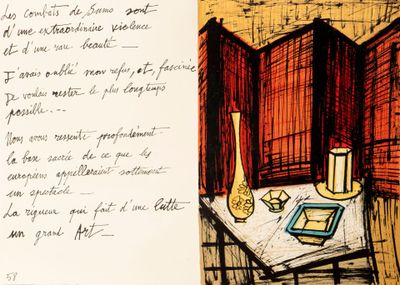 Les combats de Sumo sont
d'une extraordinaire violence
et d'une rare beauté —
J'avais oublié mon refus, et, fascinée
je voulais rester le plus longtemps
possible...
Nous avons ressenti profondément
la base sacrée de ce que les
européens appelleraient sottement
un spectacle —
La rigueur qui fait d'une lutte
un grand Art —
58